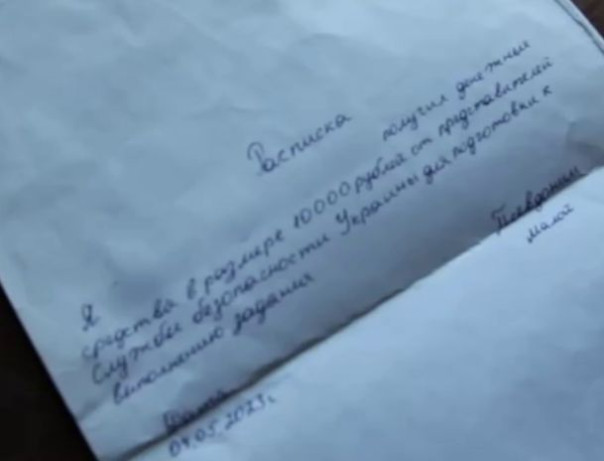 Расписка
Я получил денежные
средства в размере 10000 рублей от представителей
Службы безопасности Украины для подготовки к
выполнению задания
Псевдоним
малой
Дата
04.05.2023г.